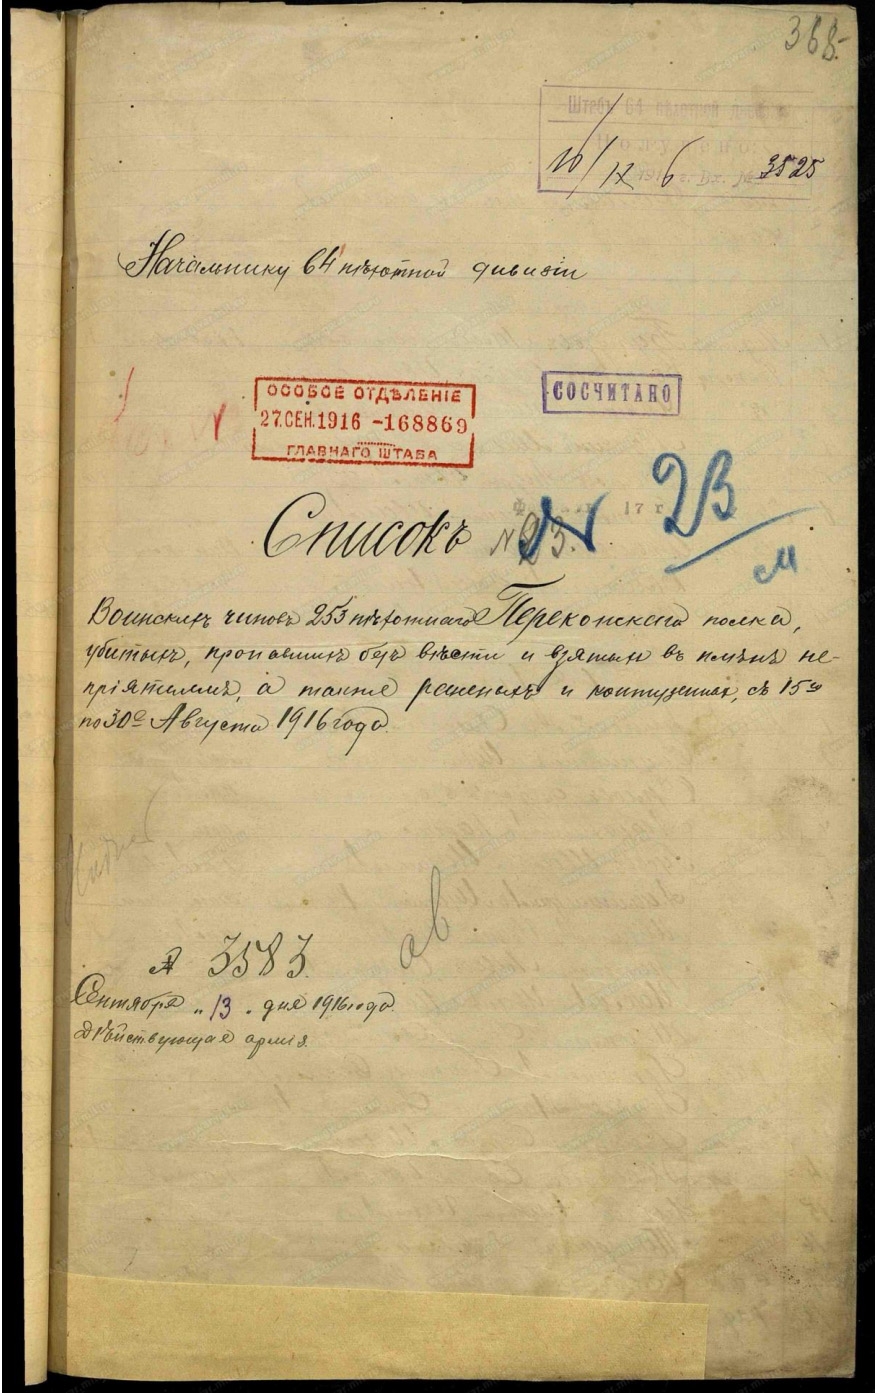 368.
Штабъ 64 пѣхотной
Получено
10/IX 6 3525
Начальнику 64 пѣхотной дивизіи
ОСОБОЕ ОТДѢЛЕНІЕ
27.СЕН.1916 -168869
ГЛАВНАГО ШТАБА
СОСЧИТАНО
17 г
23
Списокъ №23.
см
Воинскихъ чиновъ 253 пѣхотнаго Перекопскаго полка,
убитыхъ, пропавшихъ безъ вѣсти и взятыхъ въ плѣнъ не-
пріятелемъ, а также раненыхъ и контуженыхъ, съ 15го
по 30е Августа 1916 года.
ав
№ 3583.
Сентября „13„ дня 1916 года.
Дѣйствующая армія.